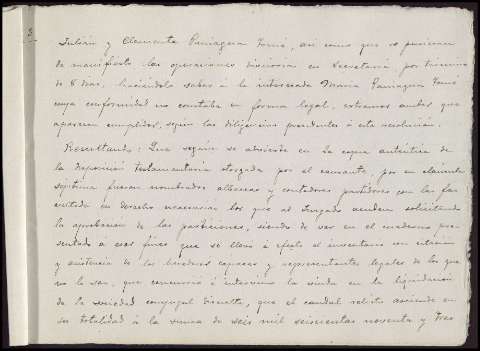 3
Julián y Clemente Paniagua Tomé, así como que se pusieran
de manifiesto las operaciones divisorias en Secretaría, por término
de 8 días, haciéndolo saber á la interesada María Paniagua Tomé
cuya conformidad no constaba en forma legal, extremos ambos que
aparecen cumplidos, según las diligencias precedentes á esta resolución.
Resultando: Que según se advierte en la copia auténtica de
la disposición testamentaria otorgada por el causante, por su cláusula
séptima fueron nombrados albaceas y contadores partidores con las fa
cultades en derecho necesarias los que al Juzgado acuden solicitando
la aprobación de las particiones, siendo de ver en el cuaderno pre
sentado á esos fines que se llevó á efecto el inventario con citación
y asistencia de los herederos capaces y representantes legales de los que
no lo son, que concurrió é intervino la viuda en la liquidación
de la sociedad conyugal disuelta, que el caudal relicto asciende en
su totalidad á la suma de seis mil seiscientas noventa y tres